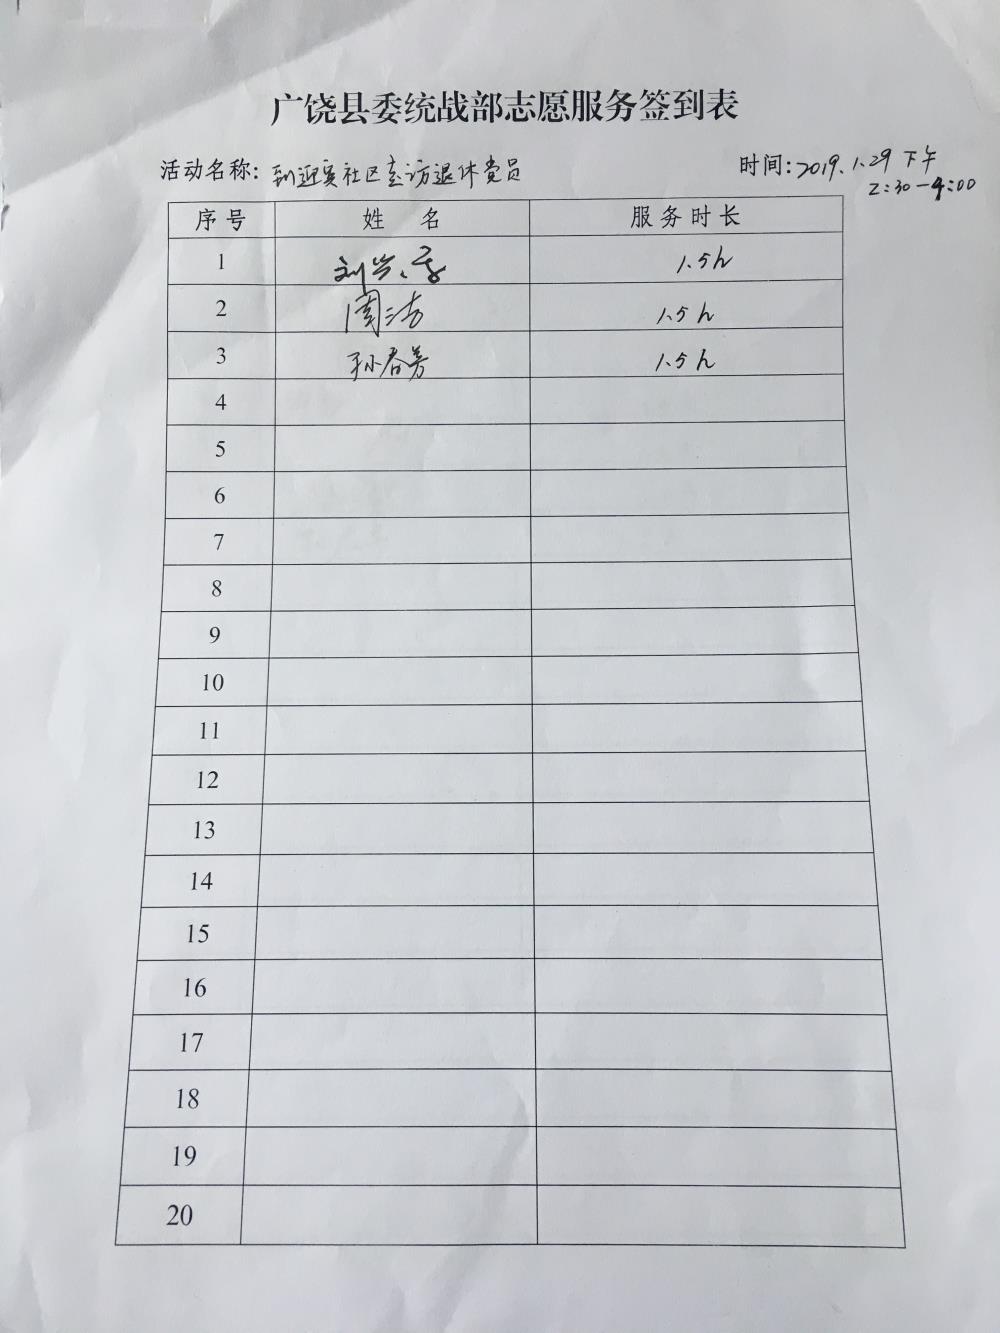 广饶县委统战部志愿服务签到表
活动名称：到迎宾社区走访退休党员
时间：2019.1.29 下午
2:30-4:00
序号 姓名 服务时长
1 刘 1.5h
2 周洁 1.5h
3 孙春芳 1.5h
4
5
6
7
8
9
10
11
12
13
14
15
16
17
18
19
20